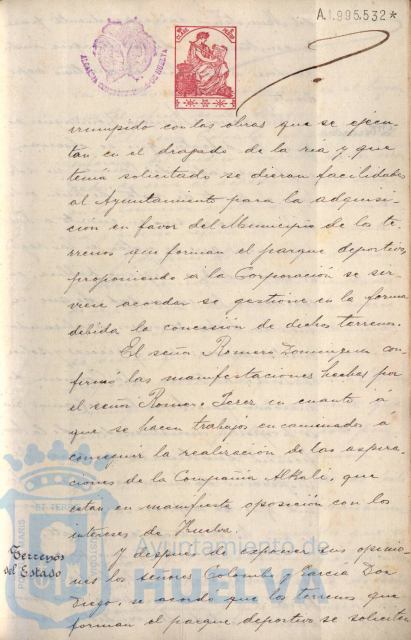 A.1.995.532*
rrumpido con las obras que se ejecu-
tan en el dragado de la ria y que
tenia solicitado se dieran facilidades
al Ayuntamiento para la adquisi-
ción en favor del Municipio de los te-
rrenos que forman el parque deportivo,
proponiendo á la Corporación se sir-
viese acordar se gestione en la forma
debida la concesión de dichos terrenos.
El señor Romero Dominguez con-
firmó las manifestaciones hechas por
el señor Romero Jerez en cuanto á
que se hacen trabajos encaminados á
conseguir la realización de las aspira-
ciones de la Compañia Alkali, que
estan en manifiesta oposición con los
intereses de Huelva.
Terrenos
del Estado
Y despues de exponer sus opinio-
nes los señores Colombo y García Don
Diego, se acordó que los terrenos que
forman el parque deportivo se soliciten
Ayuntamiento de
HUELVA